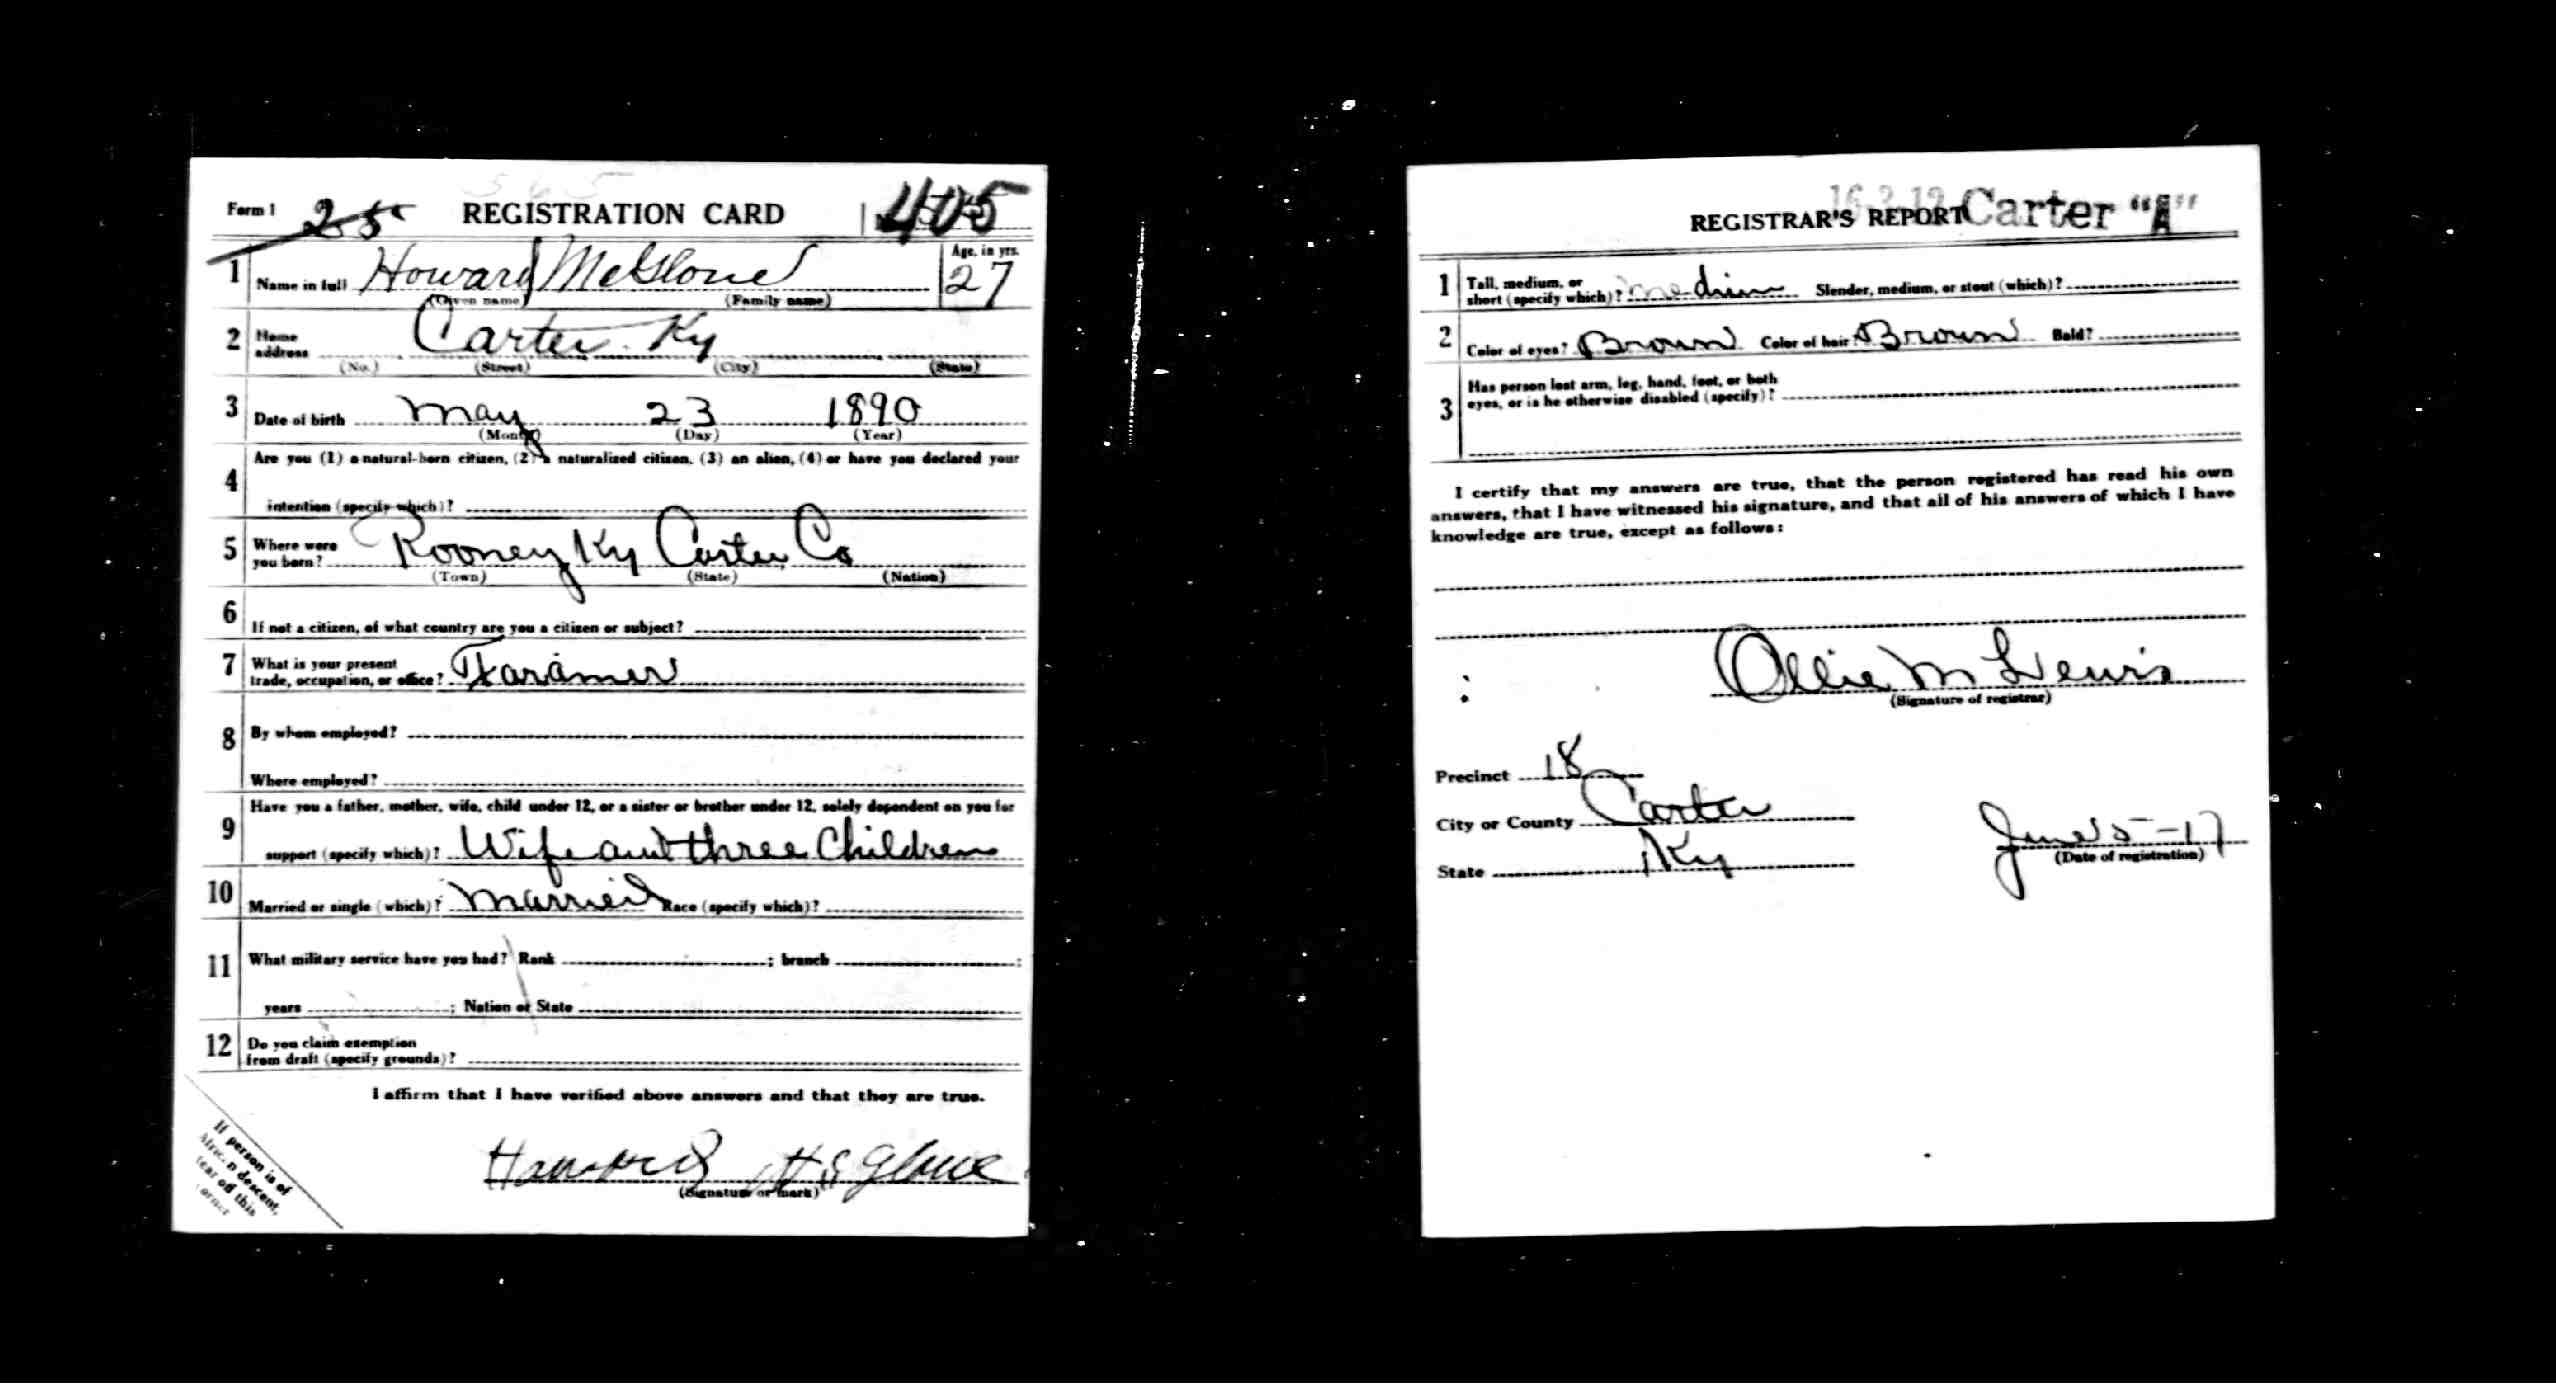 Form 1 25 REGISTRATION CARD 405
1 Name in full Howard McGlone Age, in yrs. 27
(Given name) (Family name)
2 Home address Carter Ky
(No.) (Street) (City) (State)
3 Date of birth May 23 1890
(Month) (Day) (Year)
4 Are you (1) a natural-born citizen, (2) a naturalized citizen, (3) an alien, (4) or have you declared your
intention (specify which)?
5 Where were you born? Rooney Ky Carter Co
(Town) (State) (Nation)
6 If not a citizen, of what country are you a citizen or subject?
7 What is your present
trade, occupation, or office? Faramer
8 By whom employed?
Where employed?
9 Have you a father, mother, wife, child under 12, or a sister or brother under 12, solely dependent on you for
support (specify which)? Wife and three Children
10 Married or single (which)? Married Race (specify which)?
11 What military service have you had? Rank ; branch ;
years ; Nation or State
12 Do you claim exemption
from draft (specify grounds)?
I affirm that I have verified above answers and that they are true.
Howard McGlone
(Signature or mark)
If person is of
African descent,
tear off this
corner
REGISTRAR'S REPORT Carter "A"
1 Tall, medium, or
short (specify which)? medium Slender, medium, or stout (which)?
2 Color of eyes? Brown Color of hair? Brown Bald?
3 Has person lost arm, leg, hand, foot, or both
eyes, or is he otherwise disabled (specify)?
I certify that my answers are true, that the person registered has read his own
answers, that I have witnessed his signature, and that all of his answers of which I have
knowledge are true, except as follows:
Ollie M Lewis
(Signature of registrar)
Precinct 18
City or County Carter
State Ky
June 5-17
(Date of registration)